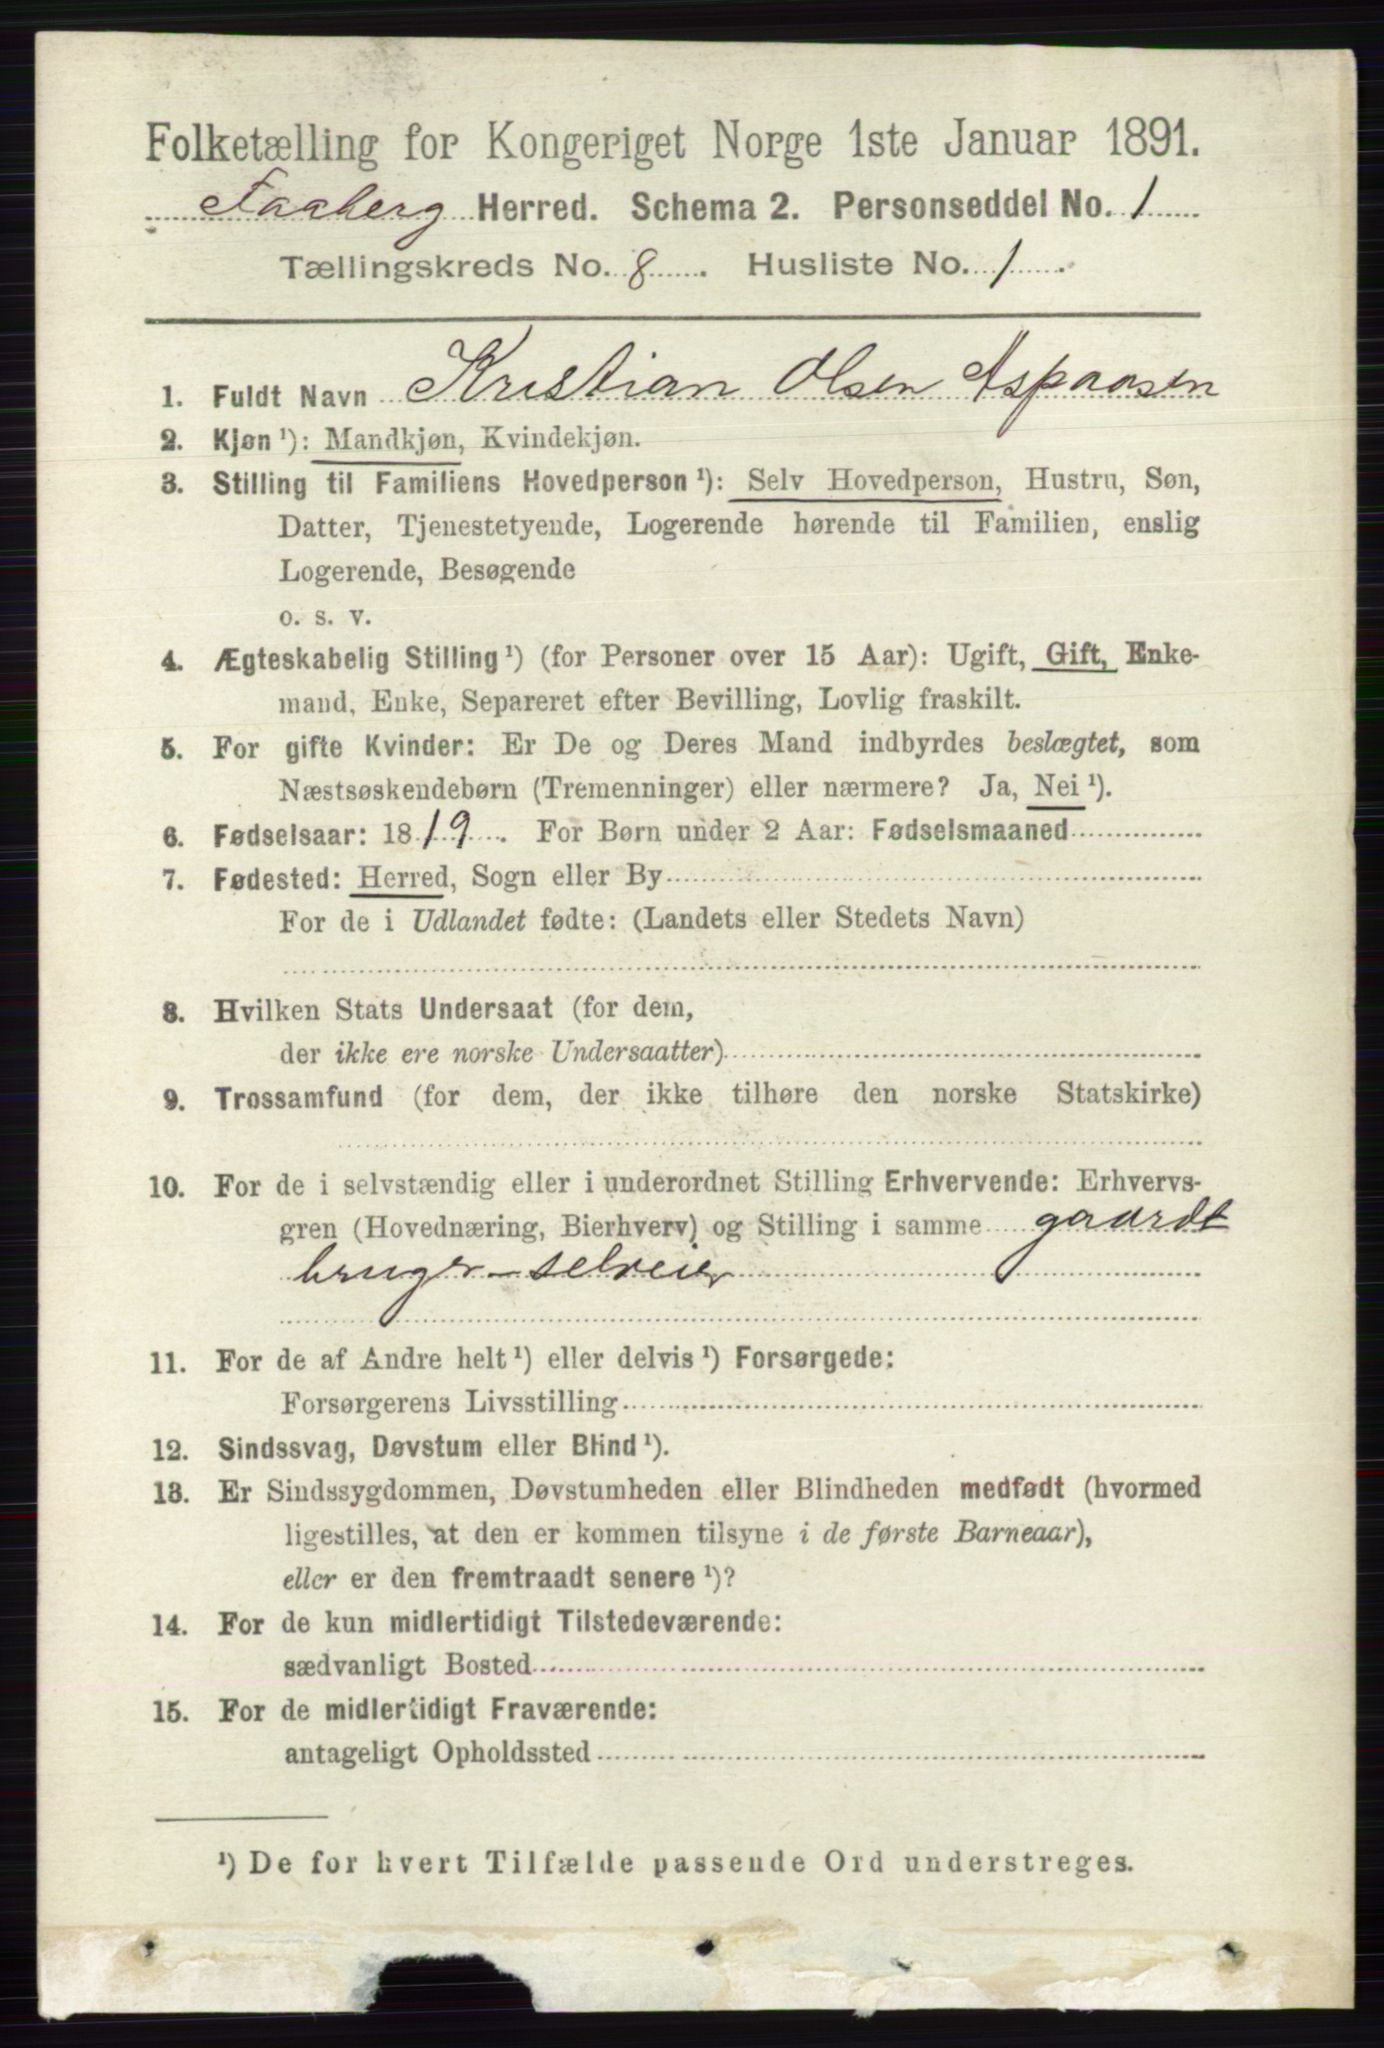 Folketælling for Kongeriget Norge 1ste Januar 1891.
Faaberg Herred. Schema 2. Personseddel No. 1
Tællingskreds No. 8. Husliste No. 1.
1. Fuldt Navn Kristian Olsen Aspaasen
2. Kjøn ¹): Mandkjøn, Kvindekjøn.
3. Stilling til Familiens Hovedperson ¹): Selv Hovedperson, Hustru, Søn,
Datter, Tjenestetyende, Logerende hørende til Familien, enslig
Logerende, Besøgende
o. s. v.
4. Ægteskabelig Stilling ¹) (for Personer over 15 Aar): Ugift, Gift, Enke-
mand, Enke, Separeret efter Bevilling, Lovlig fraskilt.
5. For gifte Kvinder: Er De og Deres Mand indbyrdes beslægtet, som
Næstsøskendebørn (Tremenninger) eller nærmere? Ja, Nei ¹).
6. Fødselsaar: 1819. For Børn under 2 Aar: Fødselsmaaned
7. Fødested: Herred, Sogn eller By
For de i Udlandet fødte: (Landets eller Stedets Navn)
8. Hvilken Stats Undersaat (for dem,
der ikke ere norske Undersaatter)
9. Trossamfund (for dem, der ikke tilhøre den norske Statskirke)
10. For de i selvstændig eller i underordnet Stilling Erhvervende: Erhvervs-
gren (Hovednæring, Bierhverv) og Stilling i samme gaardt
bruger-selveier
11. For de af Andre helt ¹) eller delvis ¹) Forsørgede:
Forsørgerens Livsstilling
12. Sindssvag, Døvstum eller Blind ¹).
13. Er Sindssygdommen, Døvstumheden eller Blindheden medfødt (hvormed
ligestilles, at den er kommen tilsyne i de første Barneaar),
eller er den fremtraadt senere ¹)?
14. For de kun midlertidigt Tilstedeværende:
sædvanligt Bosted
15. For de midlertidigt Fraværende:
antageligt Opholdssted
¹) De for hvert Tilfælde passende Ord understreges.